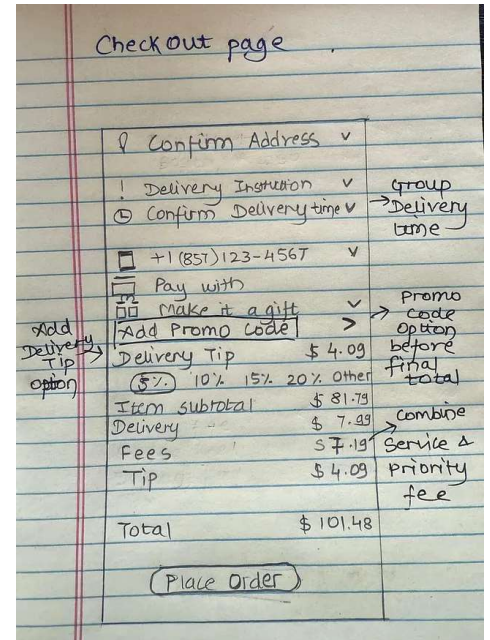 Check out page
Confirm Address
! Delivery Instruction
Confirm Delivery time
+1 (857) 123-4567
Pay with
Make it a gift
Add Promo Code >
Delivery Tip $ 4.09
5% 10% 15% 20% Other
Item subtotal $ 81.79
Delivery $ 7.99
Fees $ 7.19
Tip $ 4.09
Total $ 101.48
Place Order
Group
Delivery
time
Promo
Code
Option
before
final
total
combine
Service &
Priority
fee
Add
Delivery
Tip
option